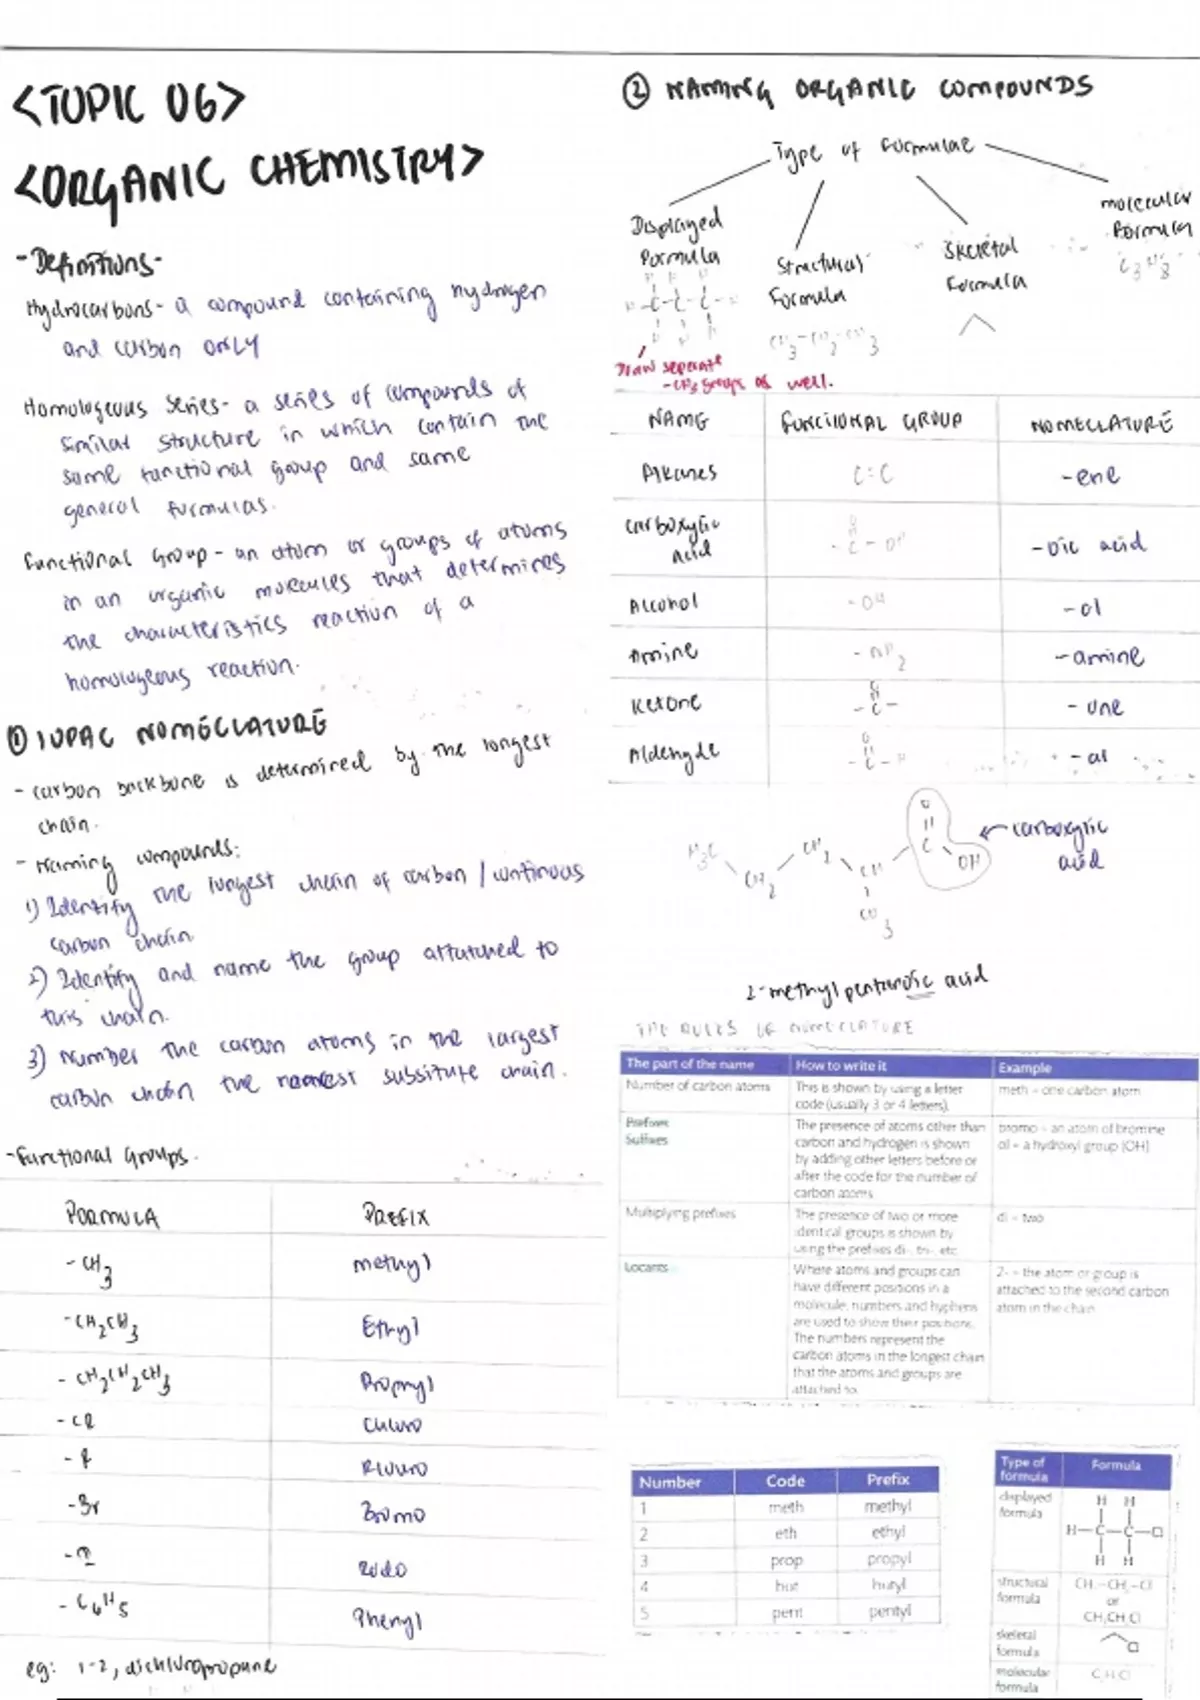 <TOPIC 06>
<ORGANIC CHEMISTRY>
- Definitions -
Hydrocarbons - a compound containing hydrogen
and carbon ONLY
Homologeous Series - a series of compounds of
similar structure in which contain the
same functional group and same
general formulas.
Functional Group - an atom or groups of atoms
in an organic molecules that determines
the characteristics reaction of a
homologeous reaction.
① IUPAC NOMECLATURE
- Carbon backbone is determined by the longest
chain.
- Naming compounds:
1) Identify the longest chain of carbon / continous
carbon chain
2) Identify and name the group attatched to
this chain.
3) Number the carbon atoms in the largest
carbon chain the nearest subsitute chain.
- Functional Groups.
FORMULA PREFIX
- CH3 methyl
- CH2CH3 Ethyl
- CH2CH2CH3 Propyl
- Cl Chloro
- F Fluoro
- Br Bromo
- I Iodo
- C6H5 Phenyl
eg: 1-2, dichloropropane
② NAMING ORGANIC COMPOUNDS
Type of Formulae
Displayed
Formula
H H H
H-C-C-C-H
H H H
Draw seperate
- CH3 groups as well.
Structural
Formula
CH3-CH2-CH3
Skeletal
Formula
molecular
Formula
C3H8
NAME FUNCTIONAL GROUP NOMECLATURE
Alkenes C=C -ene
Carboxylic
acid
O
-C-OH
-oic acid
Alcohol -OH -ol
Amine -NH2 -amine
Ketone
O
-C-
-one
Aldehyde
O
-C-H
-al
H3C CH2 CH2 CH C O OH
CH3
← carboxylic
acid
2-methylpentanoic acid
THE RULES OF NOMECLATURE
The part of the name How to write it Example
Number of carbon atoms This is shown by using a letter
code (usually 3 or 4 letters).
meth = one carbon atom
Prefixes
Suffixes
The presence of atoms other than
carbon and hydrogen is shown
by adding other letters before or
after the code for the number of
carbon atoms
bromo = an atom of bromine
oil = a hydroxyl group (OH)
Multiplying prefixes The presence of two or more
identical groups is shown by
using the prefixes di-, tri-, etc.
di = two
Locants Where atoms and groups can
have different positions in a
molecule, numbers and hyphens
are used to show their positions.
The numbers represent the
carbon atoms in the longest chain
that the atoms and groups are
attached to.
2- = the atom or group is
attached to the second carbon
atom in the chain
Number Code Prefix
1 meth methyl
2 eth ethyl
3 prop propyl
4 but butyl
5 pent pentyl
Type of
formula
Formula
displayed
formula
H H
H-C-C-Cl
H H
structural
formula
CH3-CH2-Cl
or
CH3CH2Cl
skeletal
formula
Cl
molecular
formula